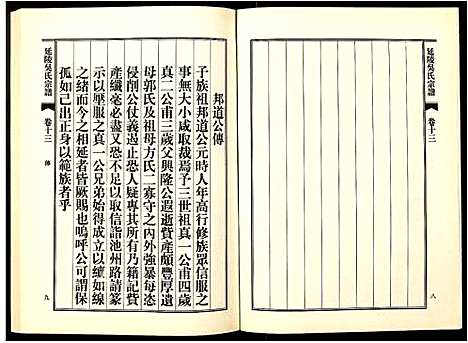 延陵吳氏宗譜
卷十三
八
邦道公傳
子族祖邦道公元時人年高行修族眾信服之
事無大小咸取裁焉予三世祖真一公甫四歲
真二公甫三歲父興隆公遐逝賫產頗豐厚道
母郭氏及祖母方氏二寡守之內外強暴每恣
侵削公仗義遏止恐人疑專其所有乃籍記賫
產纖毫必盡又恐不足以取信諧池州路請篆
示以壓服之真一公兄弟始得成立以纘如線
之緒而今之相延者皆厥賜也嗚呼公可謂保
孤如己出正身以範族者乎
延陵吳氏宗譜
卷十三
傳
九